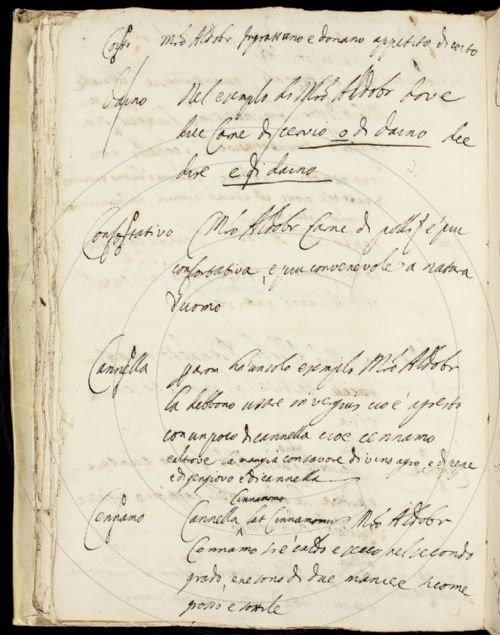 Coito Mro Aldobr Ingrassano e donano appetito di coito
Daino Nel esempio di Mro Aldobr dove
dice Carne di cervio o di daino dee
dire e di daino
Confortativo Mro Aldobr Carne di polli è più
confortativa, e più convenevole a natura
d'uomo
Cannella ha un solo esempio Mro Aldobr
la debbono usare in verjus cioè agresto
con un poco di cannella cioè cennamo
altrove la mangia con savore di vino agro, e di
e di gengiovo e di cannella
Cinnamomo
Cennamo Cannella lat Cinnamomum Mro Aldobr
Cennamo si è caldo e secco nel secondo
grado, e ne sono di due maniere siccome
grosso e sottile